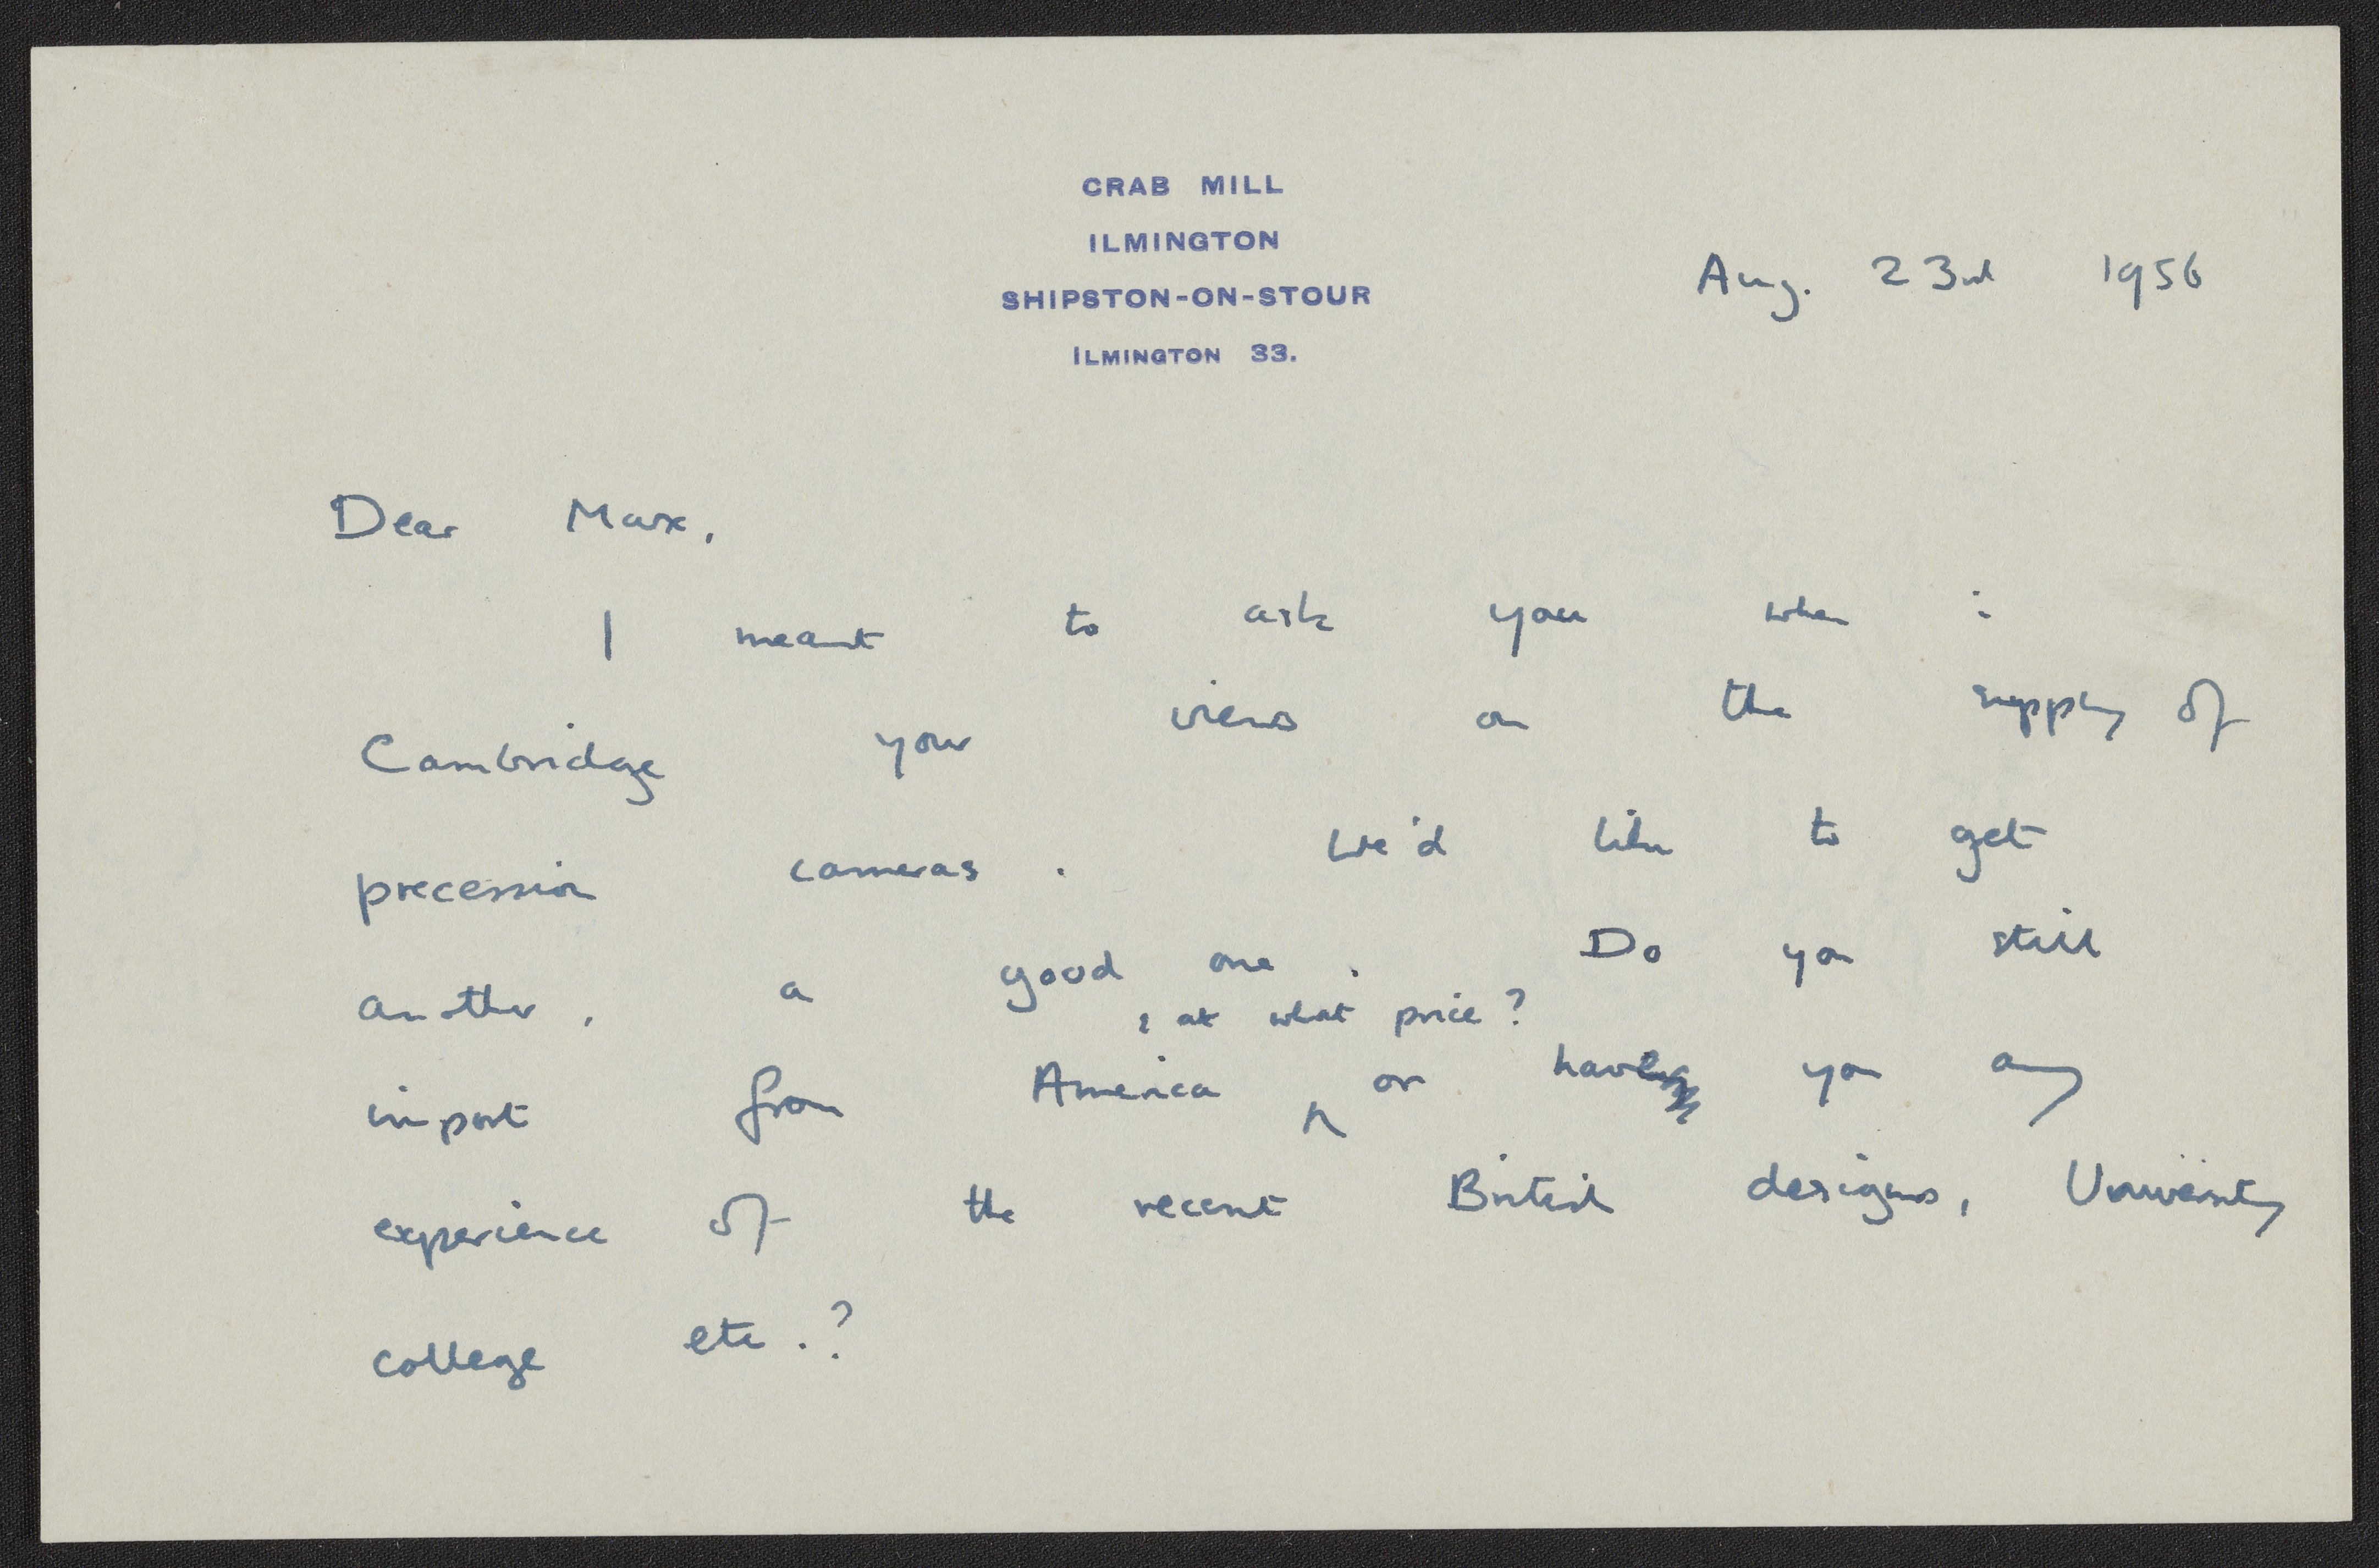 CRAB MILL
ILMINGTON
SHIPSTON-ON-STOUR
ILMINGTON 33.
Aug. 23rd 1956
Dear Max,
I meant to ask you when in
Cambridge your views on the supply of
precession cameras. We'd like to get
another, a good one. Do you still
, at what price?
import from America or have you any
experience of the recent British designs, University
college etc.?